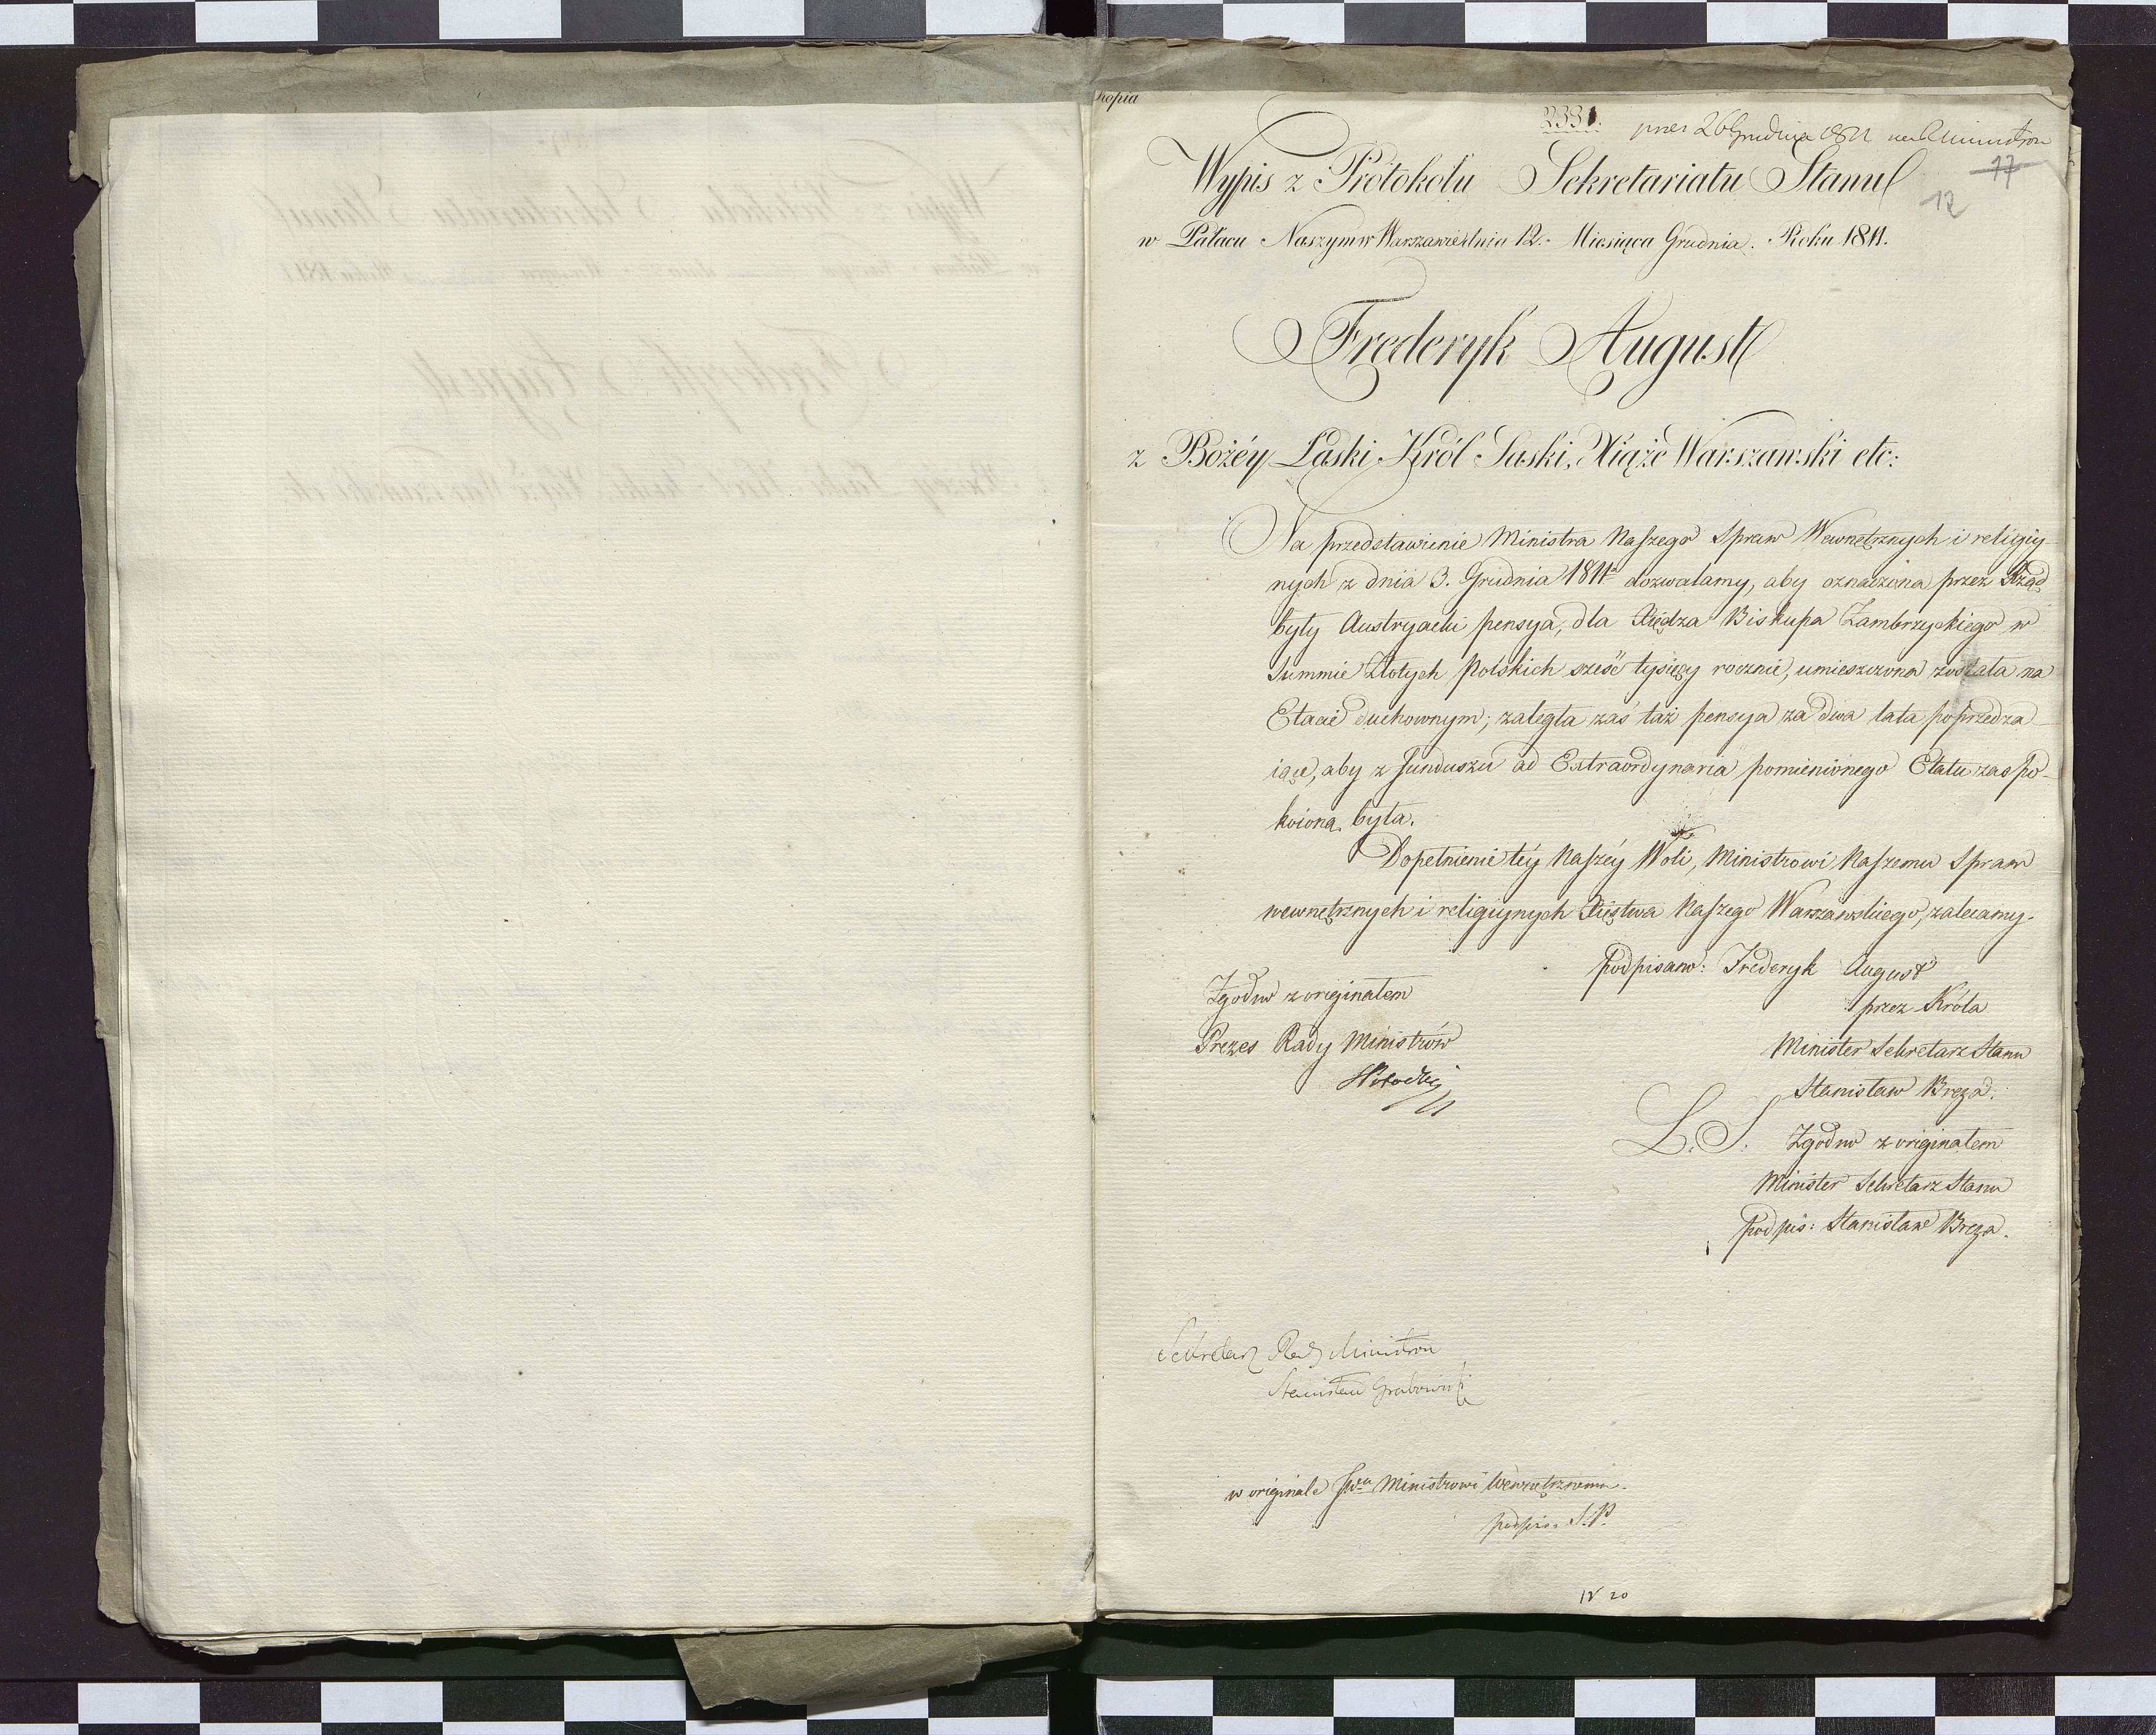 Kopia
2331. pres 26 Grudnia 1811 Ministrow
17
12
Wypis z Protokołu Sekretariatu Stanu
w Pałacu Naszym w Warszawie dnia 12. Miesiąca Grudnia. Roku 1811.
Frederyk August
z Bożéy Łaski Król Saski, Xiąże Warszawski etc:
Na przedstawienie Ministra Naszego Spraw Wewnętrznych i religiy
nych z dnia 3. Grudnia 1811 dozwalamy, aby oznaczona przez Rząd
były Austryacki pensya, dla Xiędza Biskupa Zambrzyckiego w
Summie Złotych Polskich sześć tysięcy rocznie, umieszczona została na
Etacie duchownym; zaległa zaś taż pensya za dwa lata poprzedza
iące, aby z funduszu ad Extraordynaria pomienionego Etatu zaspo-
koiona była.
Dopełnienie téy Naszéy Woli, Ministrowi Naszemu Spraw
wewnętrznych i religiynych Xięstwa Naszego Warszawskiego, zalecamy.
podpisano: Frederyk August
przez Króla
Minister Sekretarz Stanu
Stanisław Breza.
Zgodno z originałem
Prezes Rady Ministrów
L. S. Zgodno z originałem
Minister Sekretarz Stanu
podpis: Stanisław Breza.
Sekretarz Rady Ministrow
Stanisław Grabowski
w originale Ministrowi Wewnętrznemu.
podpis. S. P.
20